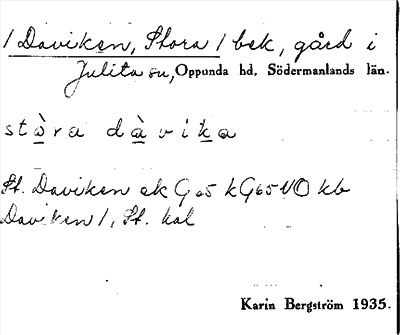 / Daviken, Stora / bek, gård i
Julita sn, Oppunda hd, Södermanlands län.
stòra dàvika
St. Daviken ek G 65 kG65 NO kb
Daviken /, St. kal
Karin Bergström 1935.